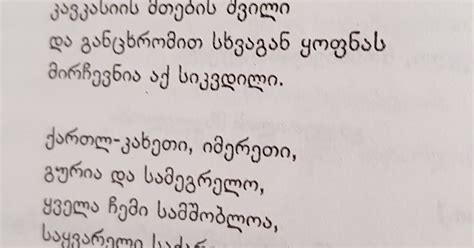 კავკასიის მთების შვილი
და განცხრომით სხვაგან ყოფნას
მირჩევნია აქ სიკვდილი.
ქართლ-კახეთი, იმერეთი,
გურია და სამეგრელო,
ყველა ჩემი სამშობლოა,
საყვარელი